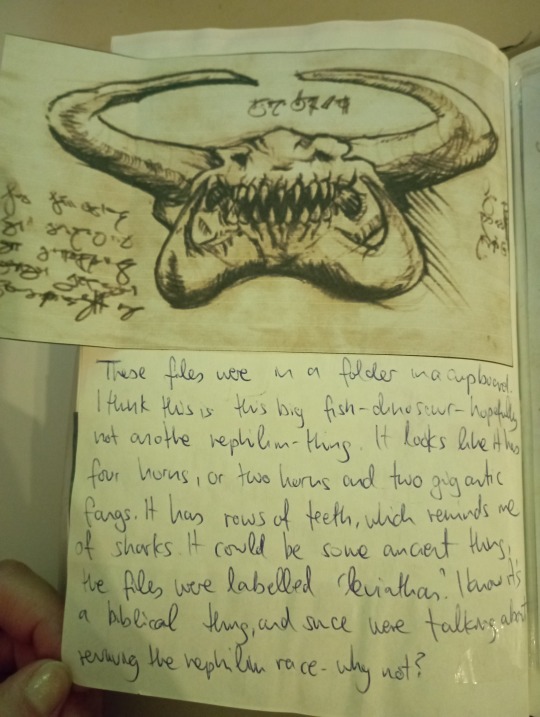 These files were in a folder in a cupboard.
I think this is this big fish-dinosaur-hopefully
not anothe nephilim-thing. It looks like it has
four horns, or two horns and two gigantic
fangs. It has rows of teeth, which reminds me
of sharks. It could be some ancient thing,
the files were labelled "leviathan". I know it's
a biblical thing, and since were talking about
reviving the nephilim race - why not?